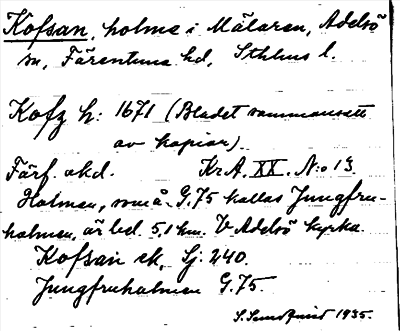 Kofsan, holme i Mälaren, Adelsö
sn, Färentuna hd, Sthlms l.
Kofz h: 1671 (Bladet sammansatt
av kopior).
Färf. akd. Kr.A. XX. N:o 13.
Holmen, som å G.75 kallas Jungfru-
holmen, är bel. 5,1 km. V Adelsö kyrka.
Kofsan ek, Sj. 240.
Jungfruholmen G.75.
S. Sundquist 1935.